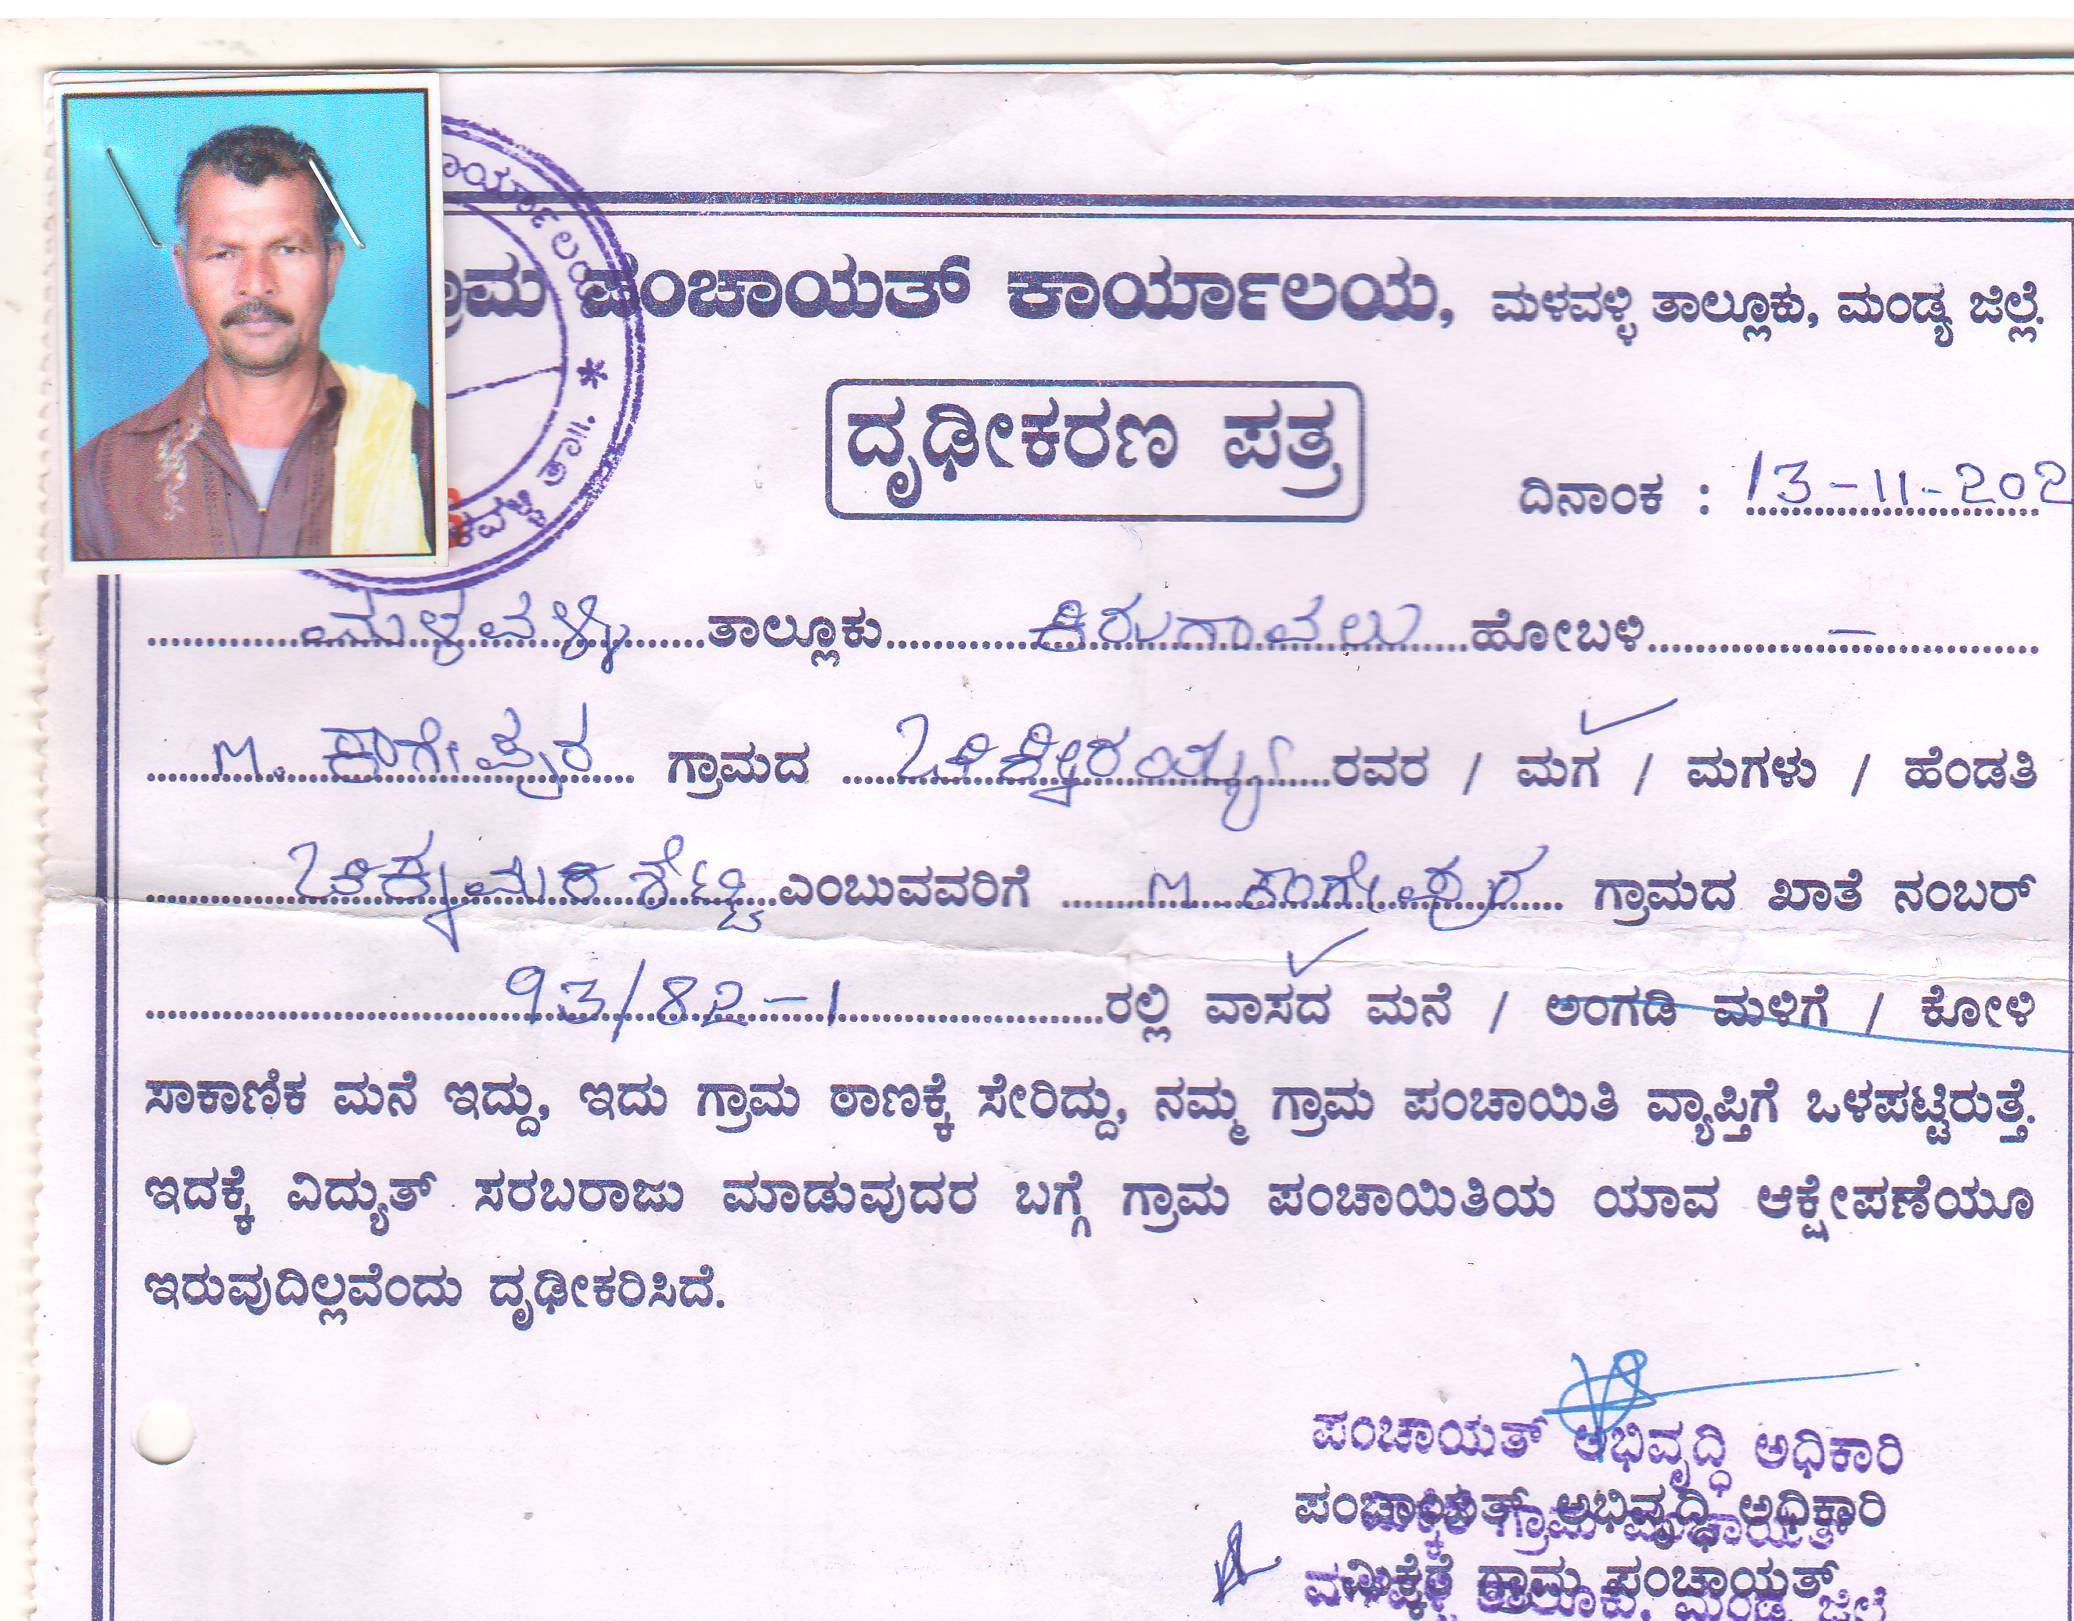 ಕಾರ್ಯಾಲಯ *
ಮಳವಳ್ಳಿ ತಾ||.
ಗ್ರಾಮ ಪಂಚಾಯತ್ ಕಾರ್ಯಾಲಯ, ಮಳವಳ್ಳಿ ತಾಲ್ಲೂಕು, ಮಂಡ್ಯ ಜಿಲ್ಲೆ.
ದೃಢೀಕರಣ ಪತ್ರ
ದಿನಾಂಕ : 13-11-202
ಮಳವಳ್ಳಿ ತಾಲ್ಲೂಕು ಕಿರುಗಾವಲು ಹೋಬಳಿ -
M. ಕಾಗೇಪುರ ಗ್ರಾಮದ ರವರ / ಮಗ / ಮಗಳು / ಹೆಂಡತಿ
ಚಿಕ್ಕಮರಿಶೆಟ್ಟಿ ಎಂಬುವವರಿಗೆ M ಕಾಗೇಪುರ ಗ್ರಾಮದ ಖಾತೆ ನಂಬರ್
93/82-1 ರಲ್ಲಿ ವಾಸದ ಮನೆ / ಅಂಗಡಿ ಮಳಿಗೆ / ಕೋಳಿ
ಸಾಕಾಣಿಕೆ ಮನೆ ಇದ್ದು, ಇದು ಗ್ರಾಮ ಠಾಣಕ್ಕೆ ಸೇರಿದ್ದು, ನಮ್ಮ ಗ್ರಾಮ ಪಂಚಾಯಿತಿ ವ್ಯಾಪ್ತಿಗೆ ಒಳಪಟ್ಟಿರುತ್ತೆ.
ಇದಕ್ಕೆ ವಿದ್ಯುತ್ ಸರಬರಾಜು ಮಾಡುವುದರ ಬಗ್ಗೆ ಗ್ರಾಮ ಪಂಚಾಯಿತಿಯ ಯಾವ ಆಕ್ಷೇಪಣೆಯೂ
ಇರುವುದಿಲ್ಲವೆಂದು ದೃಢೀಕರಿಸಿದೆ.
ಪಂಚಾಯತ್ ಅಭಿವೃದ್ಧಿ ಅಧಿಕಾರಿ
ಪಂಚಾಯತ್ ಅಭಿವೃದ್ಧಿ ಅಧಿಕಾರಿ
ಗ್ರಾಮ ಪಂಚಾಯತ್